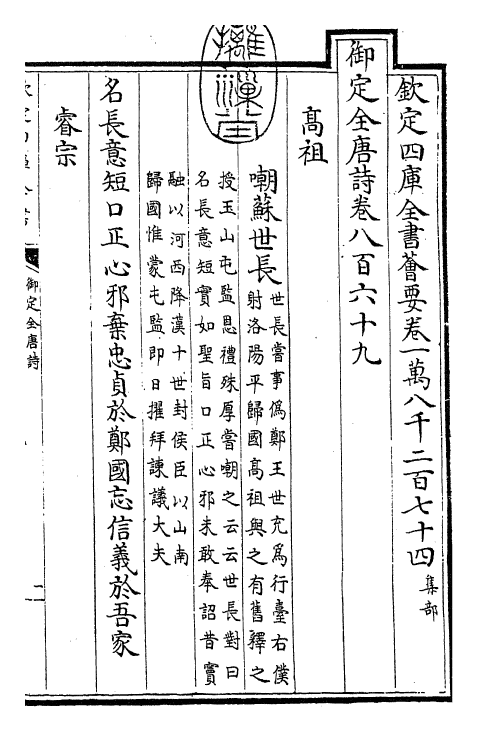 欽定四庫全書薈要卷一萬八千二百七十四集部
御定全唐詩卷八百六十九
高祖
嘲蘇世長世長嘗事僞鄭王世充爲行臺右僕
射洛陽平歸國高祖與之有舊釋之
授玉山屯監恩禮殊厚嘗嘲之云云世長對曰
名長意短實如聖旨口正心邪未敢奉詔昔竇
融以河西降漢十世封侯臣以山南
歸國惟蒙屯監即日擢拜諫議大夫
名長意短口正心邪棄忠貞於鄭國忘信義於吾家
睿宗
御定全唐詩